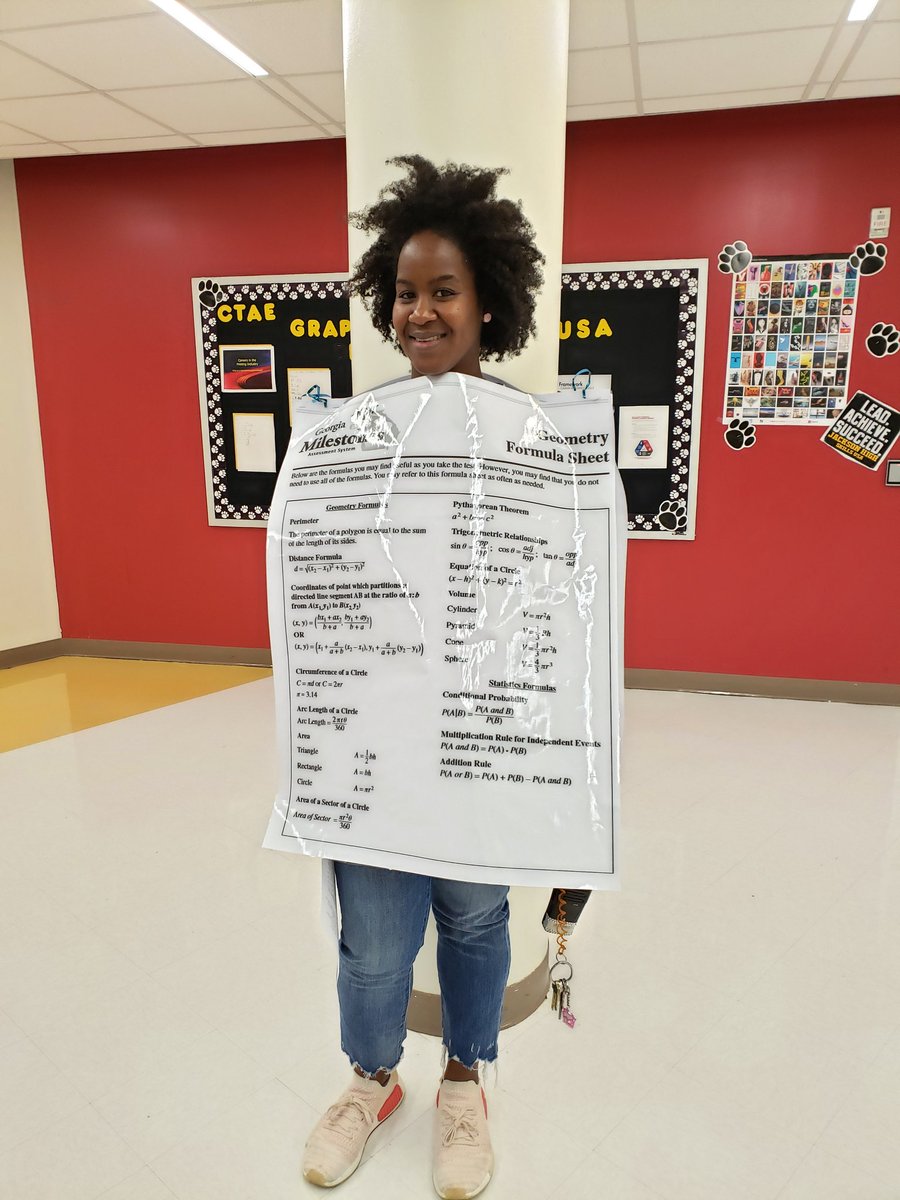 CTAE
GRAP
USA
Careers in the
Framework
LEAD.
ACHIEVE.
SUCCEED.
JACKSON HIGH
SKILLS USA
Georgia
Milestones
Assessment System
Geometry
Formula Sheet
Below are the formulas you may find useful as you take the test. However, you may find that you do not
need to use all of the formulas. You may refer to this formula sheet as often as needed.
Geometry Formulas
Perimeter
The perimeter of a polygon is equal to the sum
of the length of its sides.
Distance Formula
d = √(x₂ − x₁)² + (y₂ − y₁)²
Coordinates of point which partitions a
directed line segment AB at the ratio of a:b
from A(x₁,y₁) to B(x₂,y₂)
(x, y) = (bx₁ + ax₂/b + a, by₁ + ay₂/b + a)
OR
(x, y) = (x₁ + a/a + b (x₂ − x₁), y₁ + a/a + b (y₂ − y₁))
Circumference of a Circle
C = πd or C = 2πr
π ≈ 3.14
Arc Length of a Circle
Arc Length = 2πrθ/360
Area
Triangle A = 1/2 bh
Rectangle A = bh
Circle A = πr²
Area of a Sector of a Circle
Area of Sector = πr²θ/360
Pythagorean Theorem
a² + b² = c²
Trigonometric Relationships
sin θ = opp/hyp; cos θ = adj/hyp; tan θ = opp/adj
Equation of a Circle
(x − h)² + (y − k)² = r²
Volume
Cylinder V = πr²h
Pyramid V = 1/3 Bh
Cone V = 1/3 πr²h
Sphere V = 4/3 πr³
Statistics Formulas
Conditional Probability
P(A|B) = P(A and B)/P(B)
Multiplication Rule for Independent Events
P(A and B) = P(A) • P(B)
Addition Rule
P(A or B) = P(A) + P(B) − P(A and B)